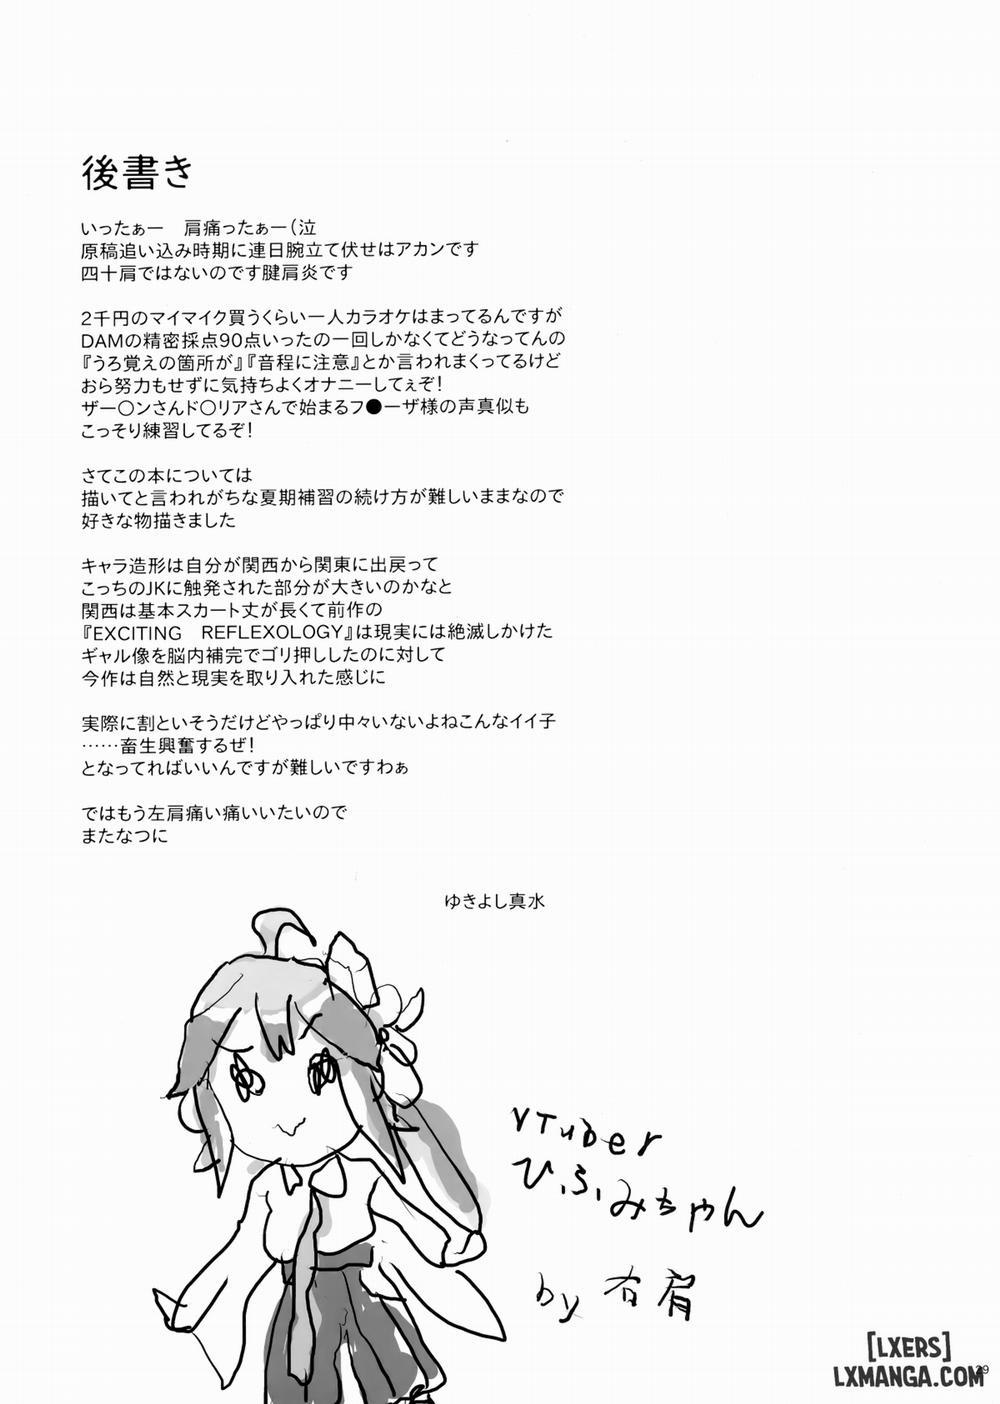 後書き
いったぁー　肩痛ったぁー（泣
原稿追い込み時期に連日腕立て伏せはアカンです
四十肩ではないのです腱肩炎です
2千円のマイマイク買うくらい一人カラオケはまってるんですが
DAMの精密採点90点いったの一回しかなくてどうなってんの
『うろ覚えの箇所が』『音程に注意』とか言われまくってるけど
おら努力もせずに気持ちよくオナニーしてぇぞ！
ザー〇ンさんド〇リアさんで始まるフ●ーザ様の声真似も
こっそり練習してるぞ！
さてこの本については
描いてと言われがちな夏期補習の続け方が難しいままなので
好きな物描きました
キャラ造形は自分が関西から関東に出戻って
こっちのJKに触発された部分が大きいのかなと
関西は基本スカート丈が長くて前作の
『EXCITING　REFLEXOLOGY』は現実には絶滅しかけた
ギャル像を脳内補完でゴリ押ししたのに対して
今作は自然と現実を取り入れた感じに
実際に割といそうだけどやっぱり中々いないよねこんなイイ子
……畜生興奮するぜ！
となってればいいんですが難しいですわぁ
ではもう左肩痛い痛いいたいので
またなつに
ゆきよし真水
VTuber
ひふみちゃん
by 右肩
[LXERS]
LXMANGA.COM
29